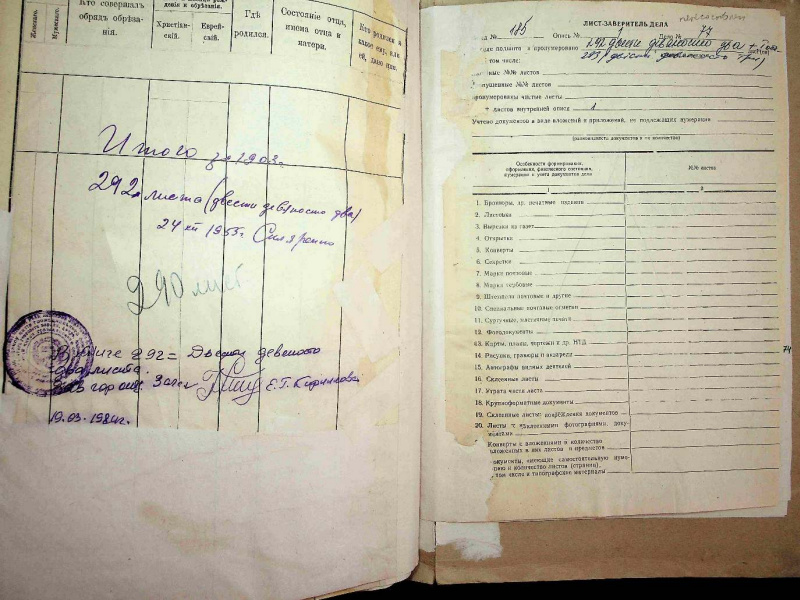 Женскаго.
Мужескаго.
Кто совершалъ
обрядъ обрѣза-
нія.
денія и обрѣзанія.
Христіан-
скій.
Еврей-
скій.
Гдѣ
родился.
Состояніе отца,
имена отца и
матери.
Кто родился и
какое ему, или
ей, дано имя.
Итого
292 листа (двести девяносто два)
24 XII 1955г.
290 лист
В книге 292 = Двести девяносто
два листа.
Е.Г. Кириллова
19.03.1984г.
ЛИСТ-ЗАВЕРИТЕЛЬ ДЕЛА
№ 185 Опись № 1 Дело № 77
подшито и пронумеровано 292 двести девяносто два +
293 (двести девяносто три)
том числе:
№№ листов
пущенные №№ листов
пронумерованы чистые листы
+ листов внутренней описи 1
Учтено документов в виде вложений и приложений, не подлежащих нумерации
(разновидность документов и их количество)
Особенности формирования,
оформления, физического состояния,
нумерации и учета документов дела
№№ листов
1
2
1. Брошюры, др. печатные издания
2. Листовки
3. Вырезки из газет
4. Открытки
5. Конверты
6. Секретки
7. Марки почтовые
8. Марки гербовые
9. Штемпели почтовые и другие
10. Специальные почтовые отметки
11. Сургучные, мастичные печати
12. Фотодокументы
13. Карты, планы, чертежи и др. НТД
14. Рисунки, гравюры и акварели
15. Автографы видных деятелей
16. Склеенные листы
17. Утрата части листа
18. Крупноформатные документы
19. Склеенные листы, повреждения документов
20. Листы с наклеенными фотографиями, доку-
ментами
Конверты с вложениями и количество
вложенных в них листов и предметов
документы, имеющие самостоятельную нуме-
рацию и количество листов (страниц),
том числе и типографские материалы
74